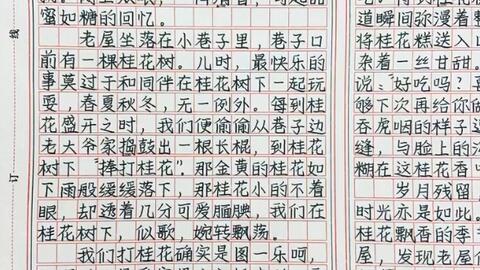 线
订
蜜如糖的回忆。
老屋坐落在小巷子里，巷子口
前有一棵桂花树。儿时，最快乐的
事莫过于和同伴在桂花树下一起玩
耍，春夏秋冬，无一例外。每到桂
花盛开之时，我们便偷偷从巷子边
老大爷家捣鼓出一根长棍，到桂花
树下“捧打桂花”。那金黄的桂花如
下雨般缓缓落下，那桂花小的不着
眼，却透着几分可爱腼腆，我们在
桂花树下，似歌，婉转飘荡。
我们打桂花确实是图一乐呵，
道瞬间弥漫着整
将桂花糕送入口
杂着一丝甘甜。
说：“好吃吗？
够下次再给你做
吞虎咽的样子
缝，与脸上的
糊在这桂花香
岁月残留
时光亦是如此。
桂花飘香的季
屋，发现老屋